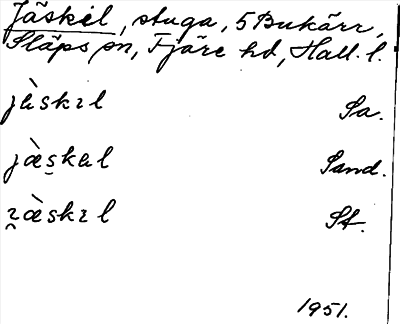 Jäskil, stuga, 5 Bukärr,
Släps sn, Fjäre hd, Hall. l.
jæ̀skɩl Sa.
jæ̀skɩl Sand.
ɀæ̀skɩl St.
1951.